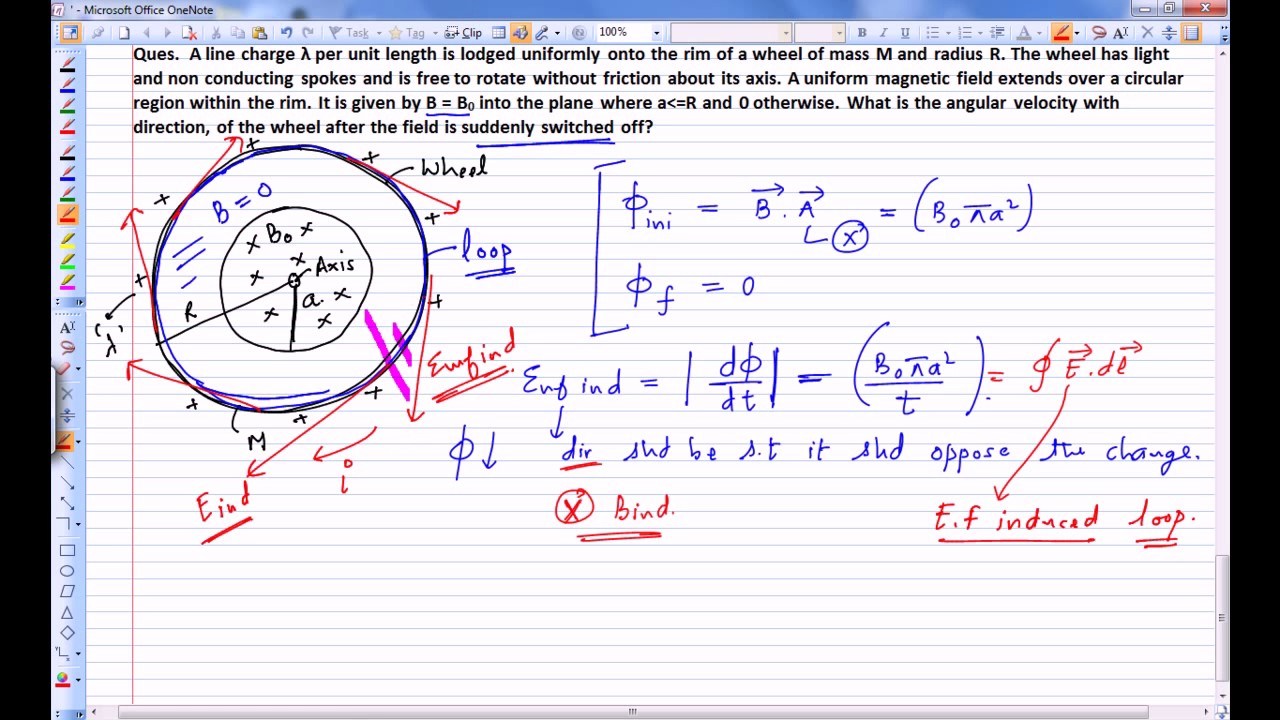 ' - Microsoft Office OneNote
Task Tag Clip 100% B I U A
Ques. A line charge λ per unit length is lodged uniformly onto the rim of a wheel of mass M and radius R. The wheel has light
and non conducting spokes and is free to rotate without friction about its axis. A uniform magnetic field extends over a circular
region within the rim. It is given by B = B₀ into the plane where a<=R and 0 otherwise. What is the angular velocity with
direction, of the wheel after the field is suddenly switched off?
Wheel
B = 0
B₀
Axis
a
R
loop
'λ'
M
Emf ind
E ind
i
ϕini = B⃗ . A⃗ = (B₀ πa²)
ϕf = 0
Emf ind = |dϕ/dt| = (B₀ πa²/t) = ∮ E⃗ . dl⃗
ϕ↓ dir shd be s.t it shd oppose the change.
ⓧ Bind.
E.f induced loop.